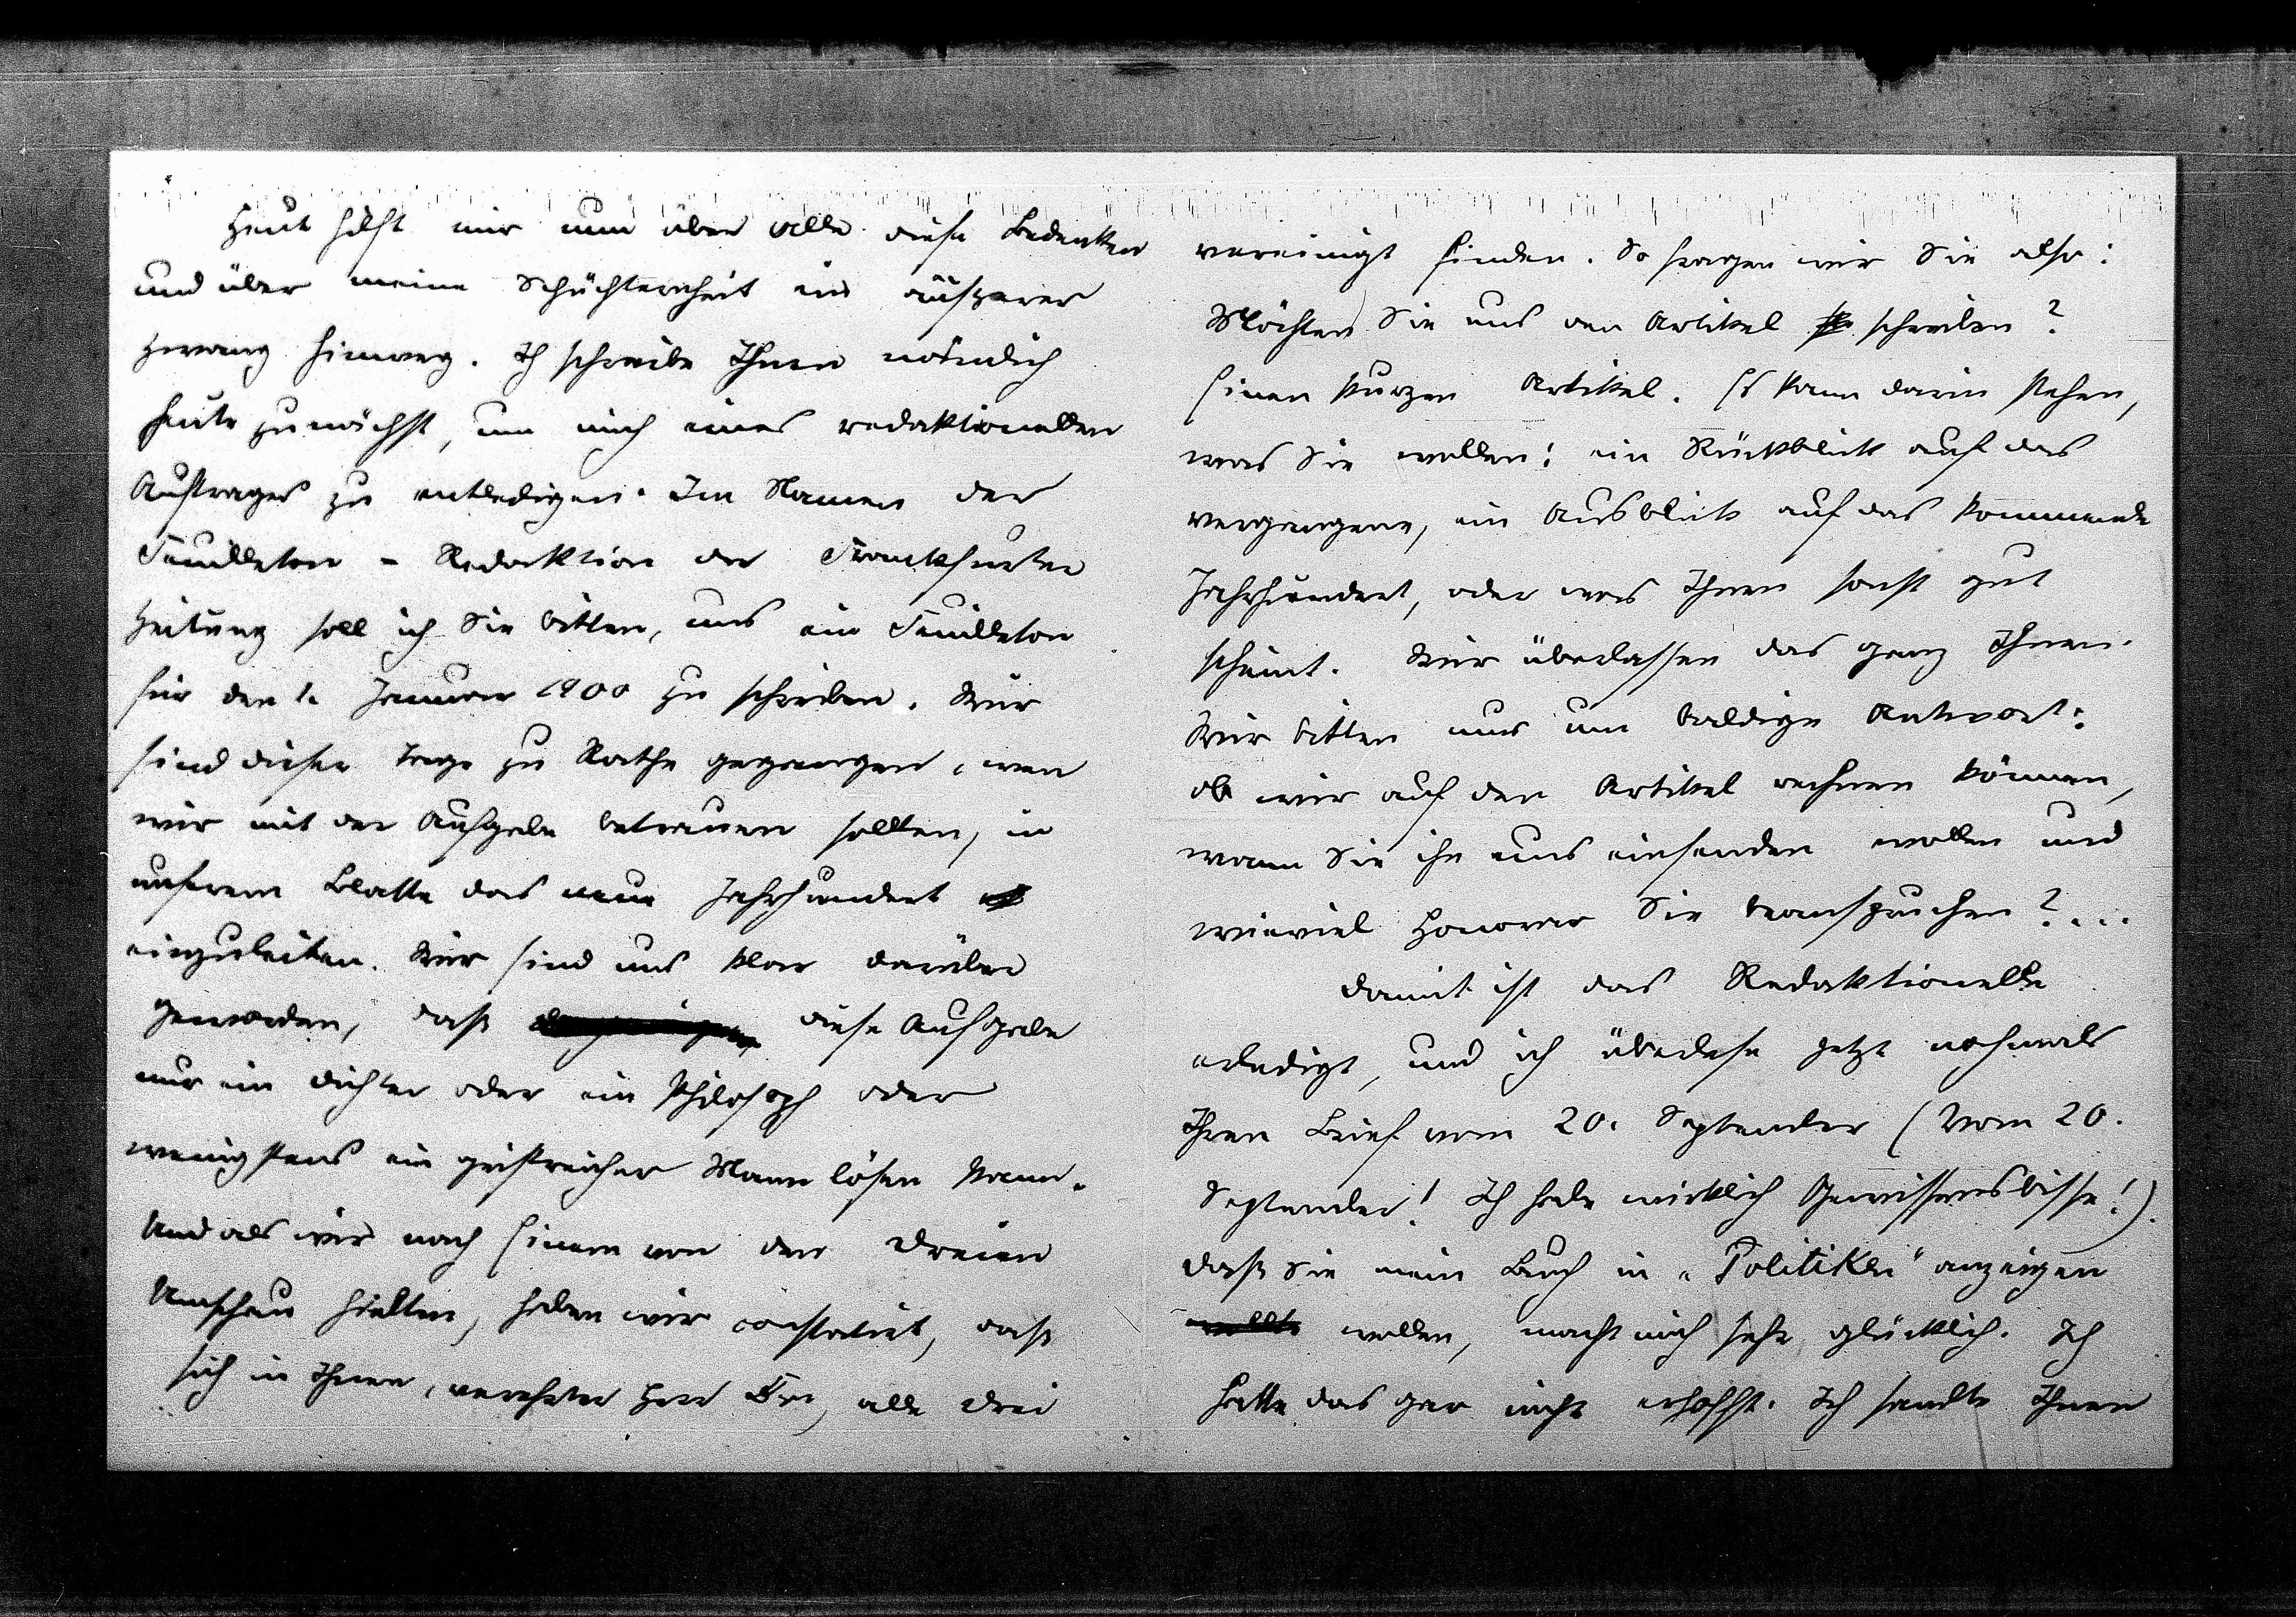 Heut hilft mir nun über alle diese Bedenken
und über meine Schüchternheit ein äußerer
Zwang hinweg. Ich schreibe Ihnen nämlich
heute zunächst, um mich eines redaktionellen
Auftrages zu entledigen. Im Namen der
Feuilleton - Redaktion der Frankfurter
Zeitung soll ich Sie bitten, uns ein Feuilleton
für den 1. Januar 1900 zu schreiben. Wir
sind dieser Tage zu Rathe gegangen, wen
wir mit der Aufgabe betrauen sollten, in
unserem Blatte das neue Jahrhundert
einzuleiten. Wir sind uns klar darüber
geworden, daß diese Aufgabe
nur ein Dichter oder ein Philosoph oder
wenigstens ein geistreicher Mann lösen kann.
Und als wir nach Einem von den Dreien
Umschau hielten, haben wir constatirt, daß
sich in Ihnen, verehrter Herr Dr, alle Drei
vereinigt finden. So fragen wir Sie also:
Möchten Sie uns den Artikel schreiben?
Einen kurzen Artikel. Es kann darin stehen,
was Sie wollen: ein Rückblick auf das
vergangene, ein Ausblick auf das kommende
Jahrhundert, oder was Ihnen sonst gut
scheint. Wir überlassen das ganz Ihnen.
Wir bitten nur um baldige Antwort:
ob wir auf den Artikel rechnen können,
wann Sie ihn uns einsenden wollen und
wieviel Honorar Sie beanspruchen?...
Damit ist das Redaktionelle
erledigt, und ich überlese jetzt nochmals
Ihren Brief vom 20. September (Vom 20.
September! Ich habe wirklich Gewissensbisse!).
Daß Sie mein Buch in „Politiken" anzeigen
wollen, macht mich sehr glücklich. Ich
hatte das gar nicht erhofft. Ich sandte Ihnen